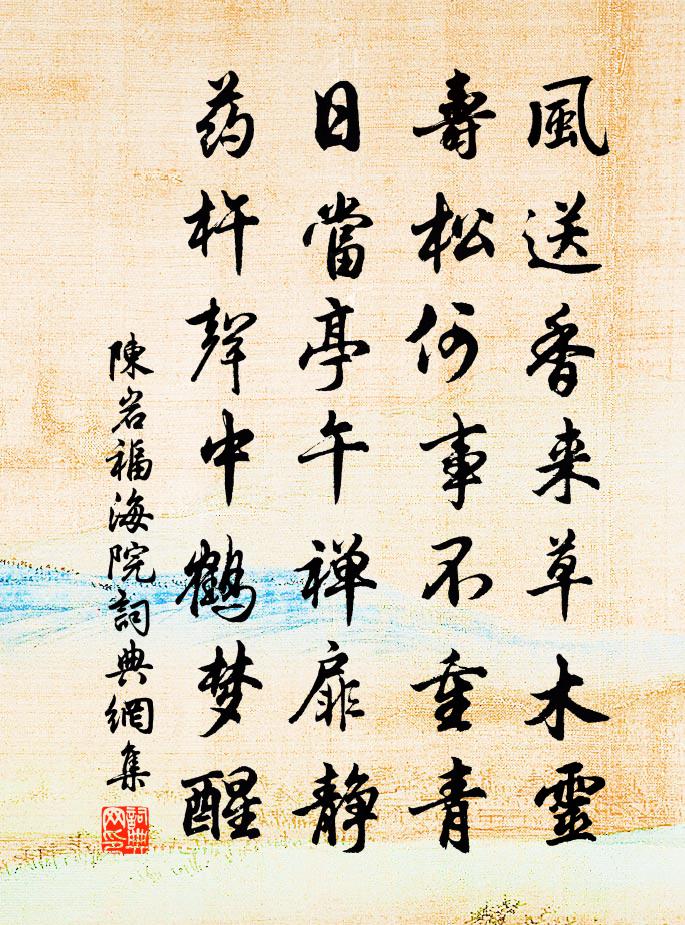 風送香来草木靈
壽松何事不重青
日當亭午禅扉静
药杵聲中鹤梦醒
陳岩福海院詞典網集
詞典网印